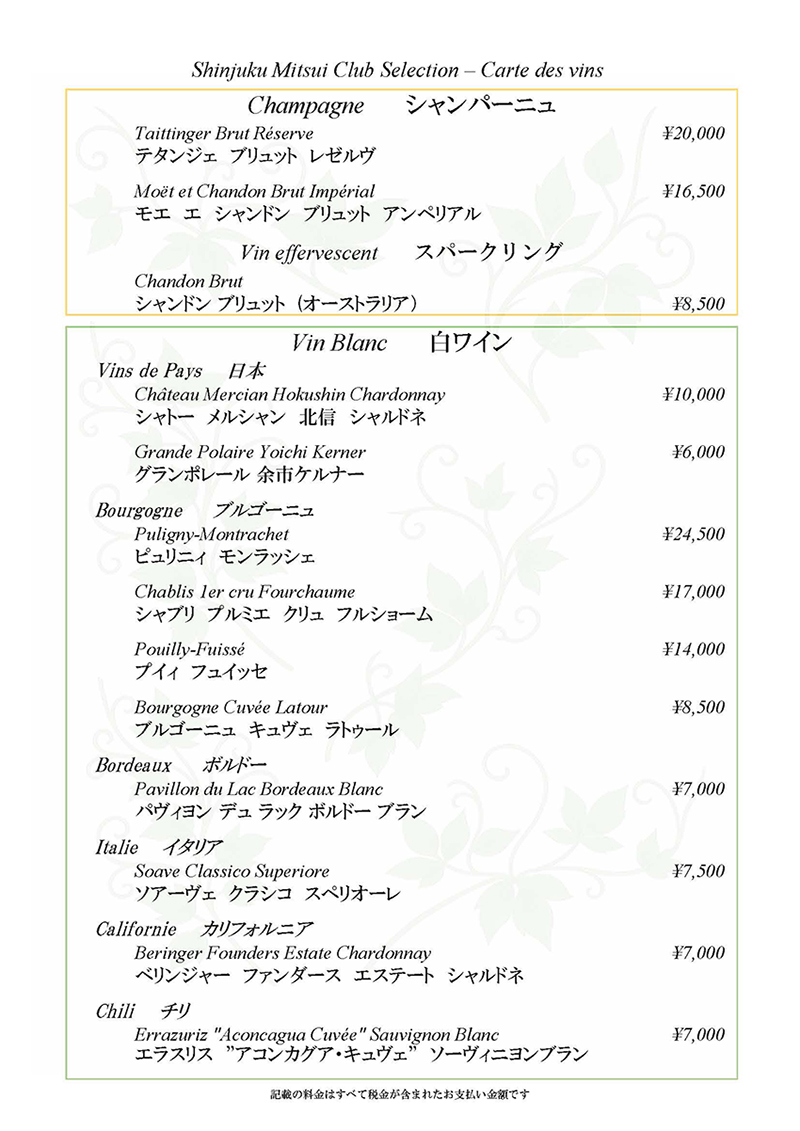 Shinjuku Mitsui Club Selection – Carte des vins
Champagne シャンパーニュ
Taittinger Brut Réserve ¥20,000
テタンジェ ブリュット レゼルヴ
Moët et Chandon Brut Impérial ¥16,500
モエ エ シャンドン ブリュット アンペリアル
Vin effervescent スパークリング
Chandon Brut
シャンドン ブリュット (オーストラリア) ¥8,500
Vin Blanc 白ワイン
Vins de Pays 日本
Château Mercian Hokushin Chardonnay ¥10,000
シャトー メルシャン 北信 シャルドネ
Grande Polaire Yoichi Kerner ¥6,000
グランポレール 余市ケルナー
Bourgogne ブルゴーニュ
Puligny-Montrachet ¥24,500
ピュリニィ モンラッシェ
Chablis 1er cru Fourchaume ¥17,000
シャブリ プルミエ クリュ フルショーム
Pouilly-Fuissé ¥14,000
プイィ フュイッセ
Bourgogne Cuvée Latour ¥8,500
ブルゴーニュ キュヴェ ラトゥール
Bordeaux ボルドー
Pavillon du Lac Bordeaux Blanc ¥7,000
パヴィヨン デュ ラック ボルドー ブラン
Italie イタリア
Soave Classico Superiore ¥7,500
ソアーヴェ クラシコ スペリオーレ
Californie カリフォルニア
Beringer Founders Estate Chardonnay ¥7,000
ベリンジャー ファンダース エステート シャルドネ
Chili チリ
Errazuriz "Aconcagua Cuvée" Sauvignon Blanc ¥7,000
エラスリス ”アコンカグア・キュヴェ” ソーヴィニヨンブラン
記載の料金はすべて税金が含まれたお支払い金額です